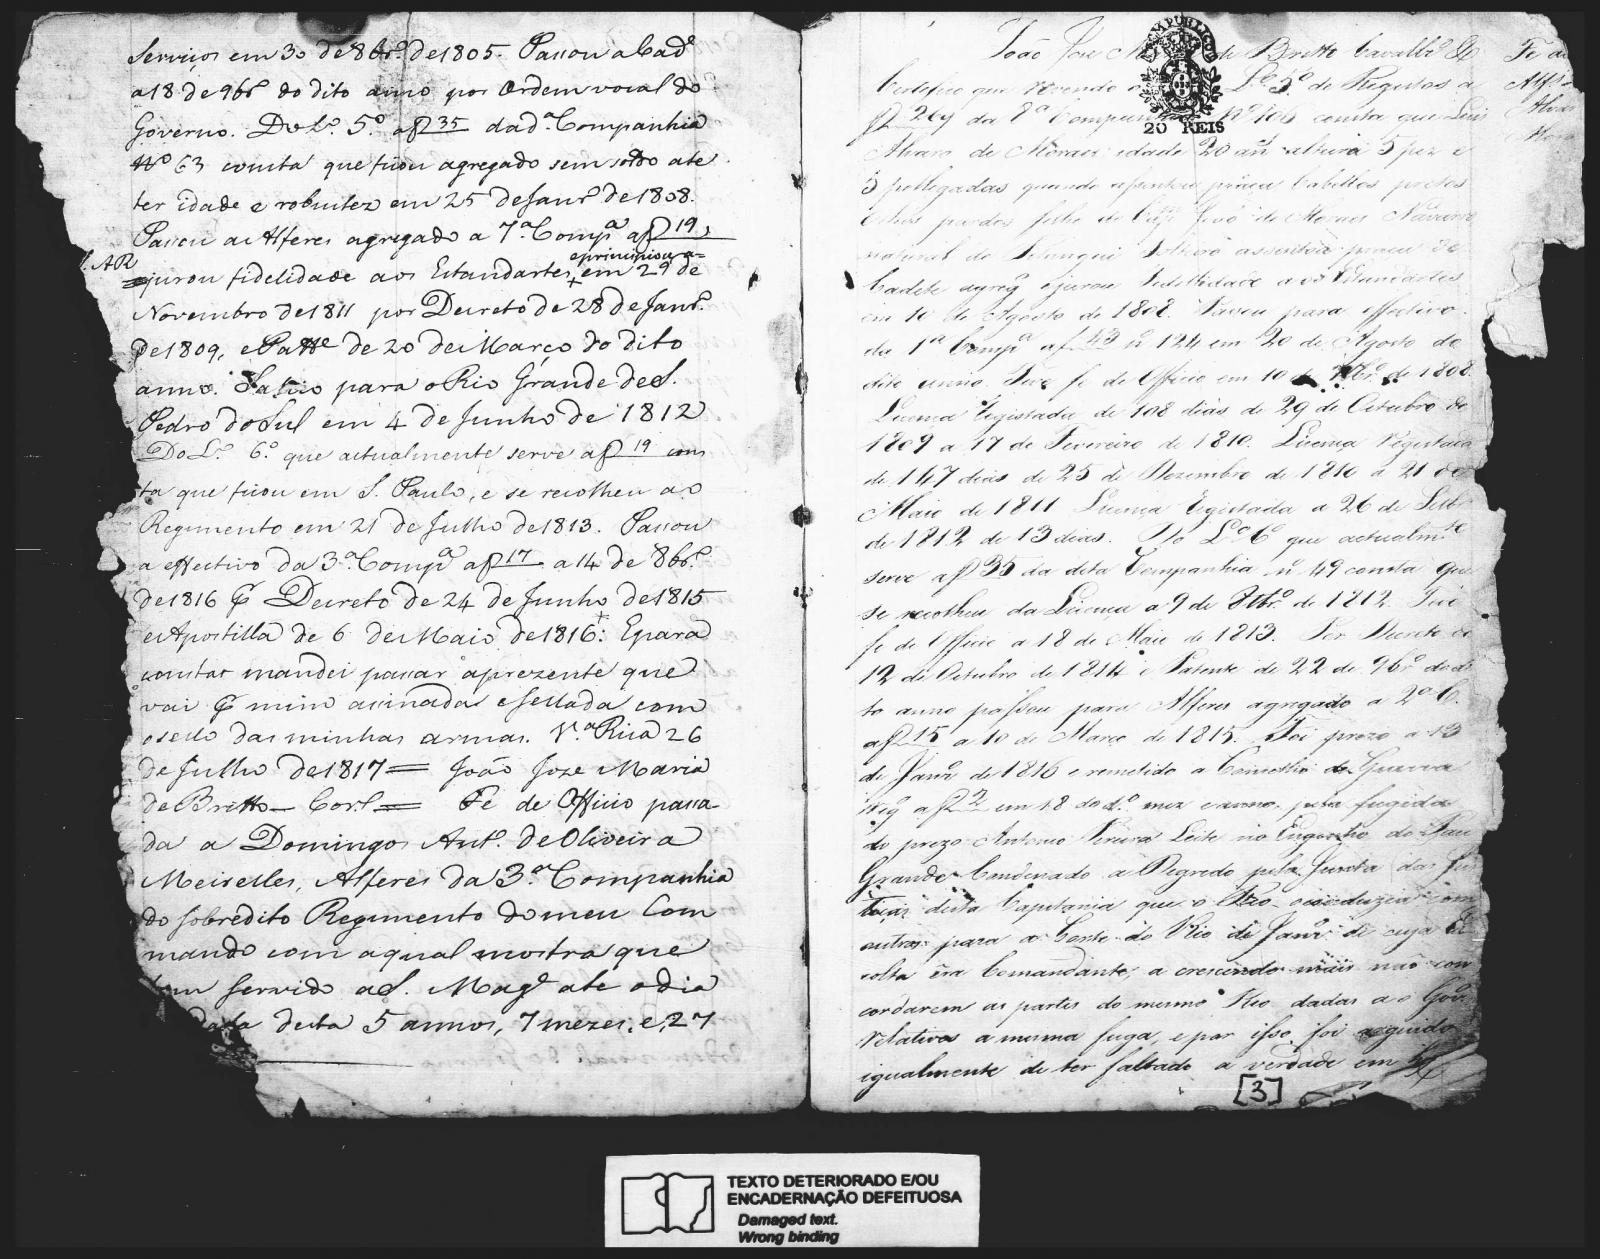 Serviços em 30 de 8br.º de 1805. Passou a Cad.e
a 18 de 9br.º do dito anno por ordem vocal do
Governo. Do L.º 5.º a f 35 da d.ª Companhia
N.º 63 consta que ficou agregado sem soldo ate
ter idade e robustez em 25 de Janr.º de 1808.
Passou a Alferes agregado a 7.ª Comp.ª a f 19,
e jurou fidelidade aos Estandartes, em 29 de
Novembro de 1811 por Decreto de 28 de Janr.º
de 1809, e Patt.e de 20 de Março do dito
anno. Sahio para o Rio Grande de S.
Pedro do Sul em 4 de Junho de 1812
Do L.º 6.º que actualmente serve a f 19 cons
ta que ficou em S. Paulo, e se recolheu ao
Regimento em 21 de Julho de 1813. Passou
a effectivo da 3.ª Comp.ª a f 17 a 14 de 8br.º
de 1816 p Decreto de 24 de Junho de 1815
e Apostilla de 6 de Maio de 1816: E para
constar mandei passar a prezente que
vai p mim assinada e sellada com
o sello das minhas armas. V.ª Rica 26
de Julho de 1817 = João Joze Maria
de Britto - Cor.l = Fé de Officio passa
da a Domingos Ant.º de Oliveira
Meirelles, Alferes da 3.ª Companhia
do sobredito Regimento do meu Com
mando com a qual mostra que
tem servido a S. Mag.e ate o dia
data desta 5 annos, 7 mezes, e 27
João Joze de Britto Cavallr.º &
Certifico que revendo o L.º 5.º de Registos a
f 269 da 8.ª Companhia N.º 106 consta que Luis
Alvaro de Moraes idade 20 an altura 5 pez e
5 pollegadas quando assentou praça Cabellos pretos
olhos pardos filho do João de Moraes Navarro
natural de Pitangui assentou praça de
Cadete agreg e jurou Fidellidade aos Estandartes
em 10 de Agosto de 1808. Passou para effectivo
da 1.ª Comp.ª a f 43 n 124 em 20 de Agosto do
dito anno. Teve fe de Officio em 10 de 9br.º de 1808.
Licença registada de 108 dias de 29 de Outubro de
1809 a 17 de Fevereiro de 1810. Licença registada
de 147 dias de 25 de Dezembro de 1810 a 21 de
Maio de 1811 Licença registada a 26 de Setbr
de 1812 de 13 dias. Do L.º 6.º que actualm.te
serve a f 35 da dita Companhia n 49 consta que
se recolheu da Licença a 9 de 8br.º de 1812. Teve
fe de Officio a 18 de Maio de 1813. Por Decreto de
12 de Outubro de 1814 e Patente de 22 de 9br.º do d
to anno passou para Alferes agregado a 2.ª C.
a f 15 a 10 de Março de 1815. Foi prezo a 13
de Janr.º de 1816 e remetido a Conselho de Guerra
Reg a f 22 em 18 do d.º mez e anno, pela fugida
do prezo Antonio Pereira Leite no Engenho do Pau
Grande Condenado a Degredo pela Junta das Jus
ticas desta Capitania que o Reo conduzia com
outros para a Corte do Rio de Janr.º de cuja Es
colta era Comandante, a crescendo mais não con
cordarem as partes do mesmo Reo dadas ao Gov.
Relativos a mesma fuga, e por isso, foi arguido
igualmente de ter faltado a verdade em
Fe de
Alf.s
Alvar
Mora
20 REIS
[3]
TEXTO DETERIORADO E/OU
ENCADERNAÇÃO DEFEITUOSA
Damaged text.
Wrong binding